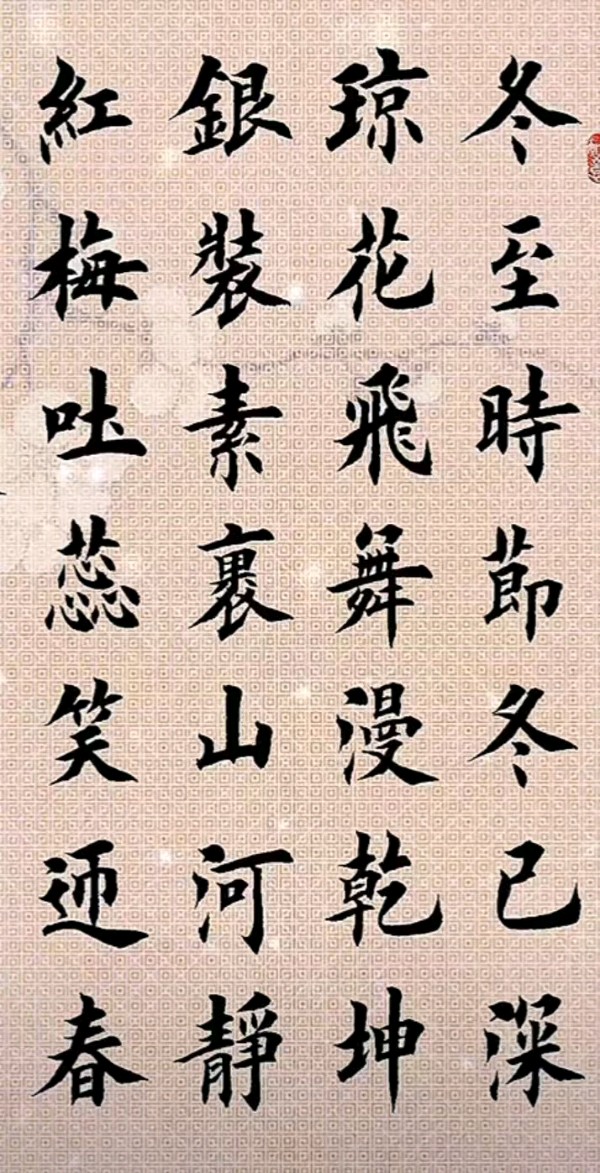 冬至時節冬已深
琼花飛舞漫乾坤
銀裝素裹山河靜
紅梅吐蕊笑迎春